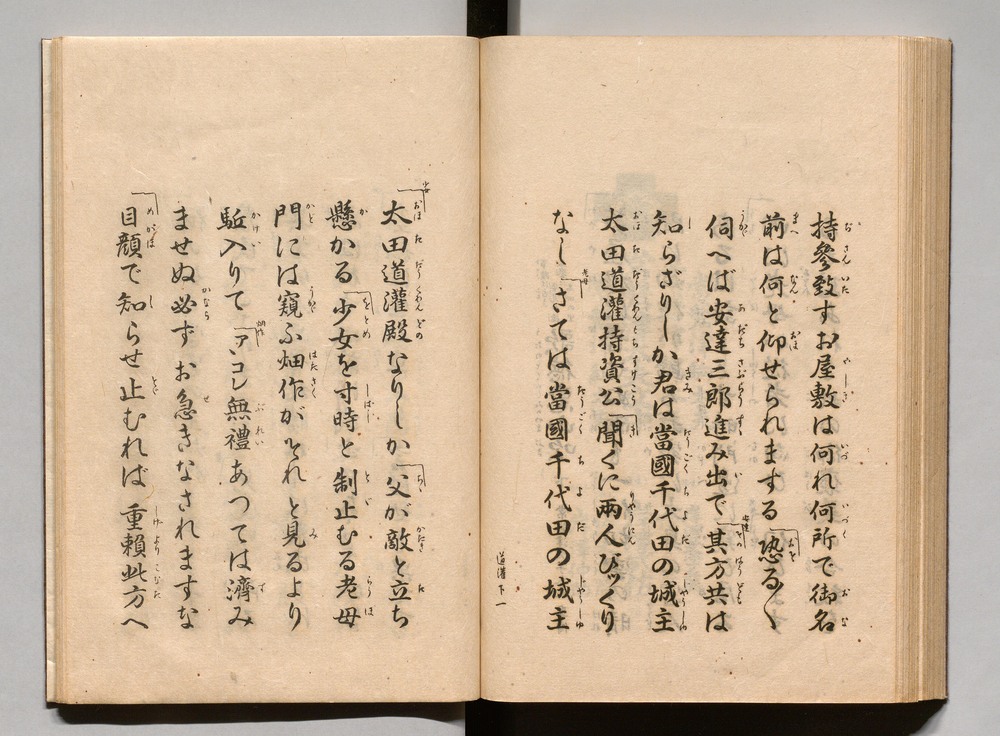 持參致すお屋敷は何れ何所で御名
前は何と仰せられまする「恐る〱
伺へば安達三郎進み出で「其方共は
知らざりしか君は當國千代田の城主
太田道灌持資公「聞くに兩人びッくり
なし「さては當國千代田の城主
道灌下 一
太田道灌殿なりしか「父が敵と立ち
懸かる「少女を寸時と制止むる老母
門には窺ふ畑作がそれと見るより
駈入りて「アヽコレ無禮あつては濟み
ませぬ必ずお急きなされますな
「目顔で知らせ止むれば重頼此方へ